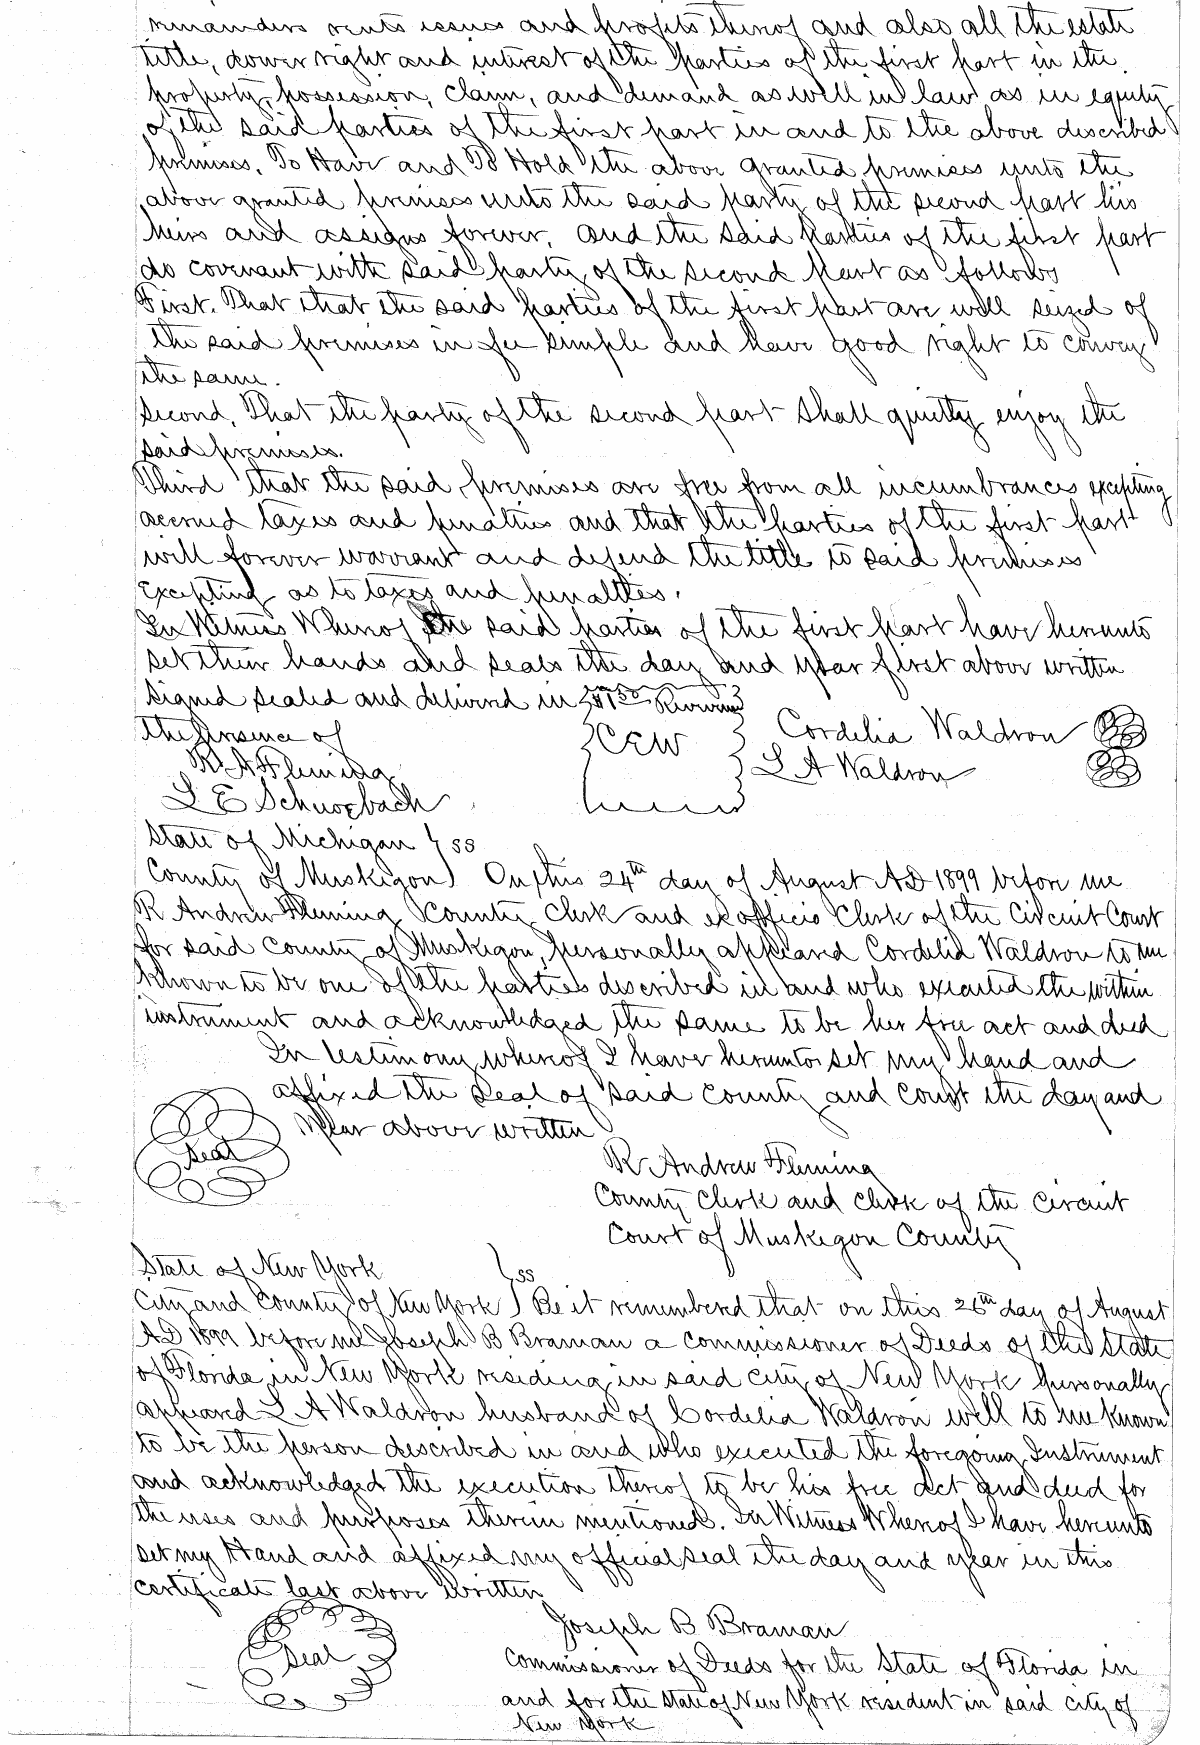 remainders rents issues and profits thereof and also all the estate
title, dower right and interest of the parties of the first part in the
property, possession, claim, and demand as well in law as in equity
of the said parties of the first part in and to the above described
premises. To Have and To Hold the above granted premises unto the
above granted premises unto the said party of the second part his
heirs and assigns forever. And the said parties of the first part
do covenant with said party of the second part as follows
First. That that the said parties of the first part are well seized of
the said premises in fee simple and have good right to convey
the same.
Second, That the party of the second part shall quietly enjoy the
said premises.
Third that the said premises are free from all incumbrances excepting
accrued taxes and penalties and that the parties of the first part
will forever warrant and defend the title to said premises
excepting as to taxes and penalties.
In Witness Whereof the said parties of the first part have hereunto
set their hands and seals the day and year first above written
Signed sealed and delivered in $1.50 Revenue
the presence of
CEW
Cordelia Waldron
R A Fleming
L A Waldron
L E Schwoebach
State of Michigan } ss
County of Muskegon) On this 24th day of August AD 1899 before me
R Andrew Fleming County Clerk and ex officio Clerk of the Circuit Court
for said County of Muskegon, personally appeared Cordelia Waldron to me
known to be one of the parties described in and who executed the within
instrument and acknowledged the same to be her free act and deed
In testimony whereof I have hereunto set my hand and
affixed the seal of said county and court the day and
year above written
Seal
R Andrew Fleming
County Clerk and clerk of the circuit
Court of Muskegon County
State of New York } ss
City and County of New York ) Be it remembered that on this 26th day of August
AD 1899 before me Joseph B Braman a commissioner of Deeds of the State
of Florida in New York residing in said city of New York personally
appeared L A Waldron husband of Cordelia Waldron well to me known
to be the person described in and who executed the foregoing Instrument
and acknowledged the execution thereof to be his free act and deed for
the uses and purposes therein mentioned. In Witness Whereof I have hereunto
set my Hand and affixed my official seal the day and year in this
certificate last above written
Seal
Joseph B Braman
Commissioner of Deeds for the State of Florida in
and for the State of New York resident in said city of
New York